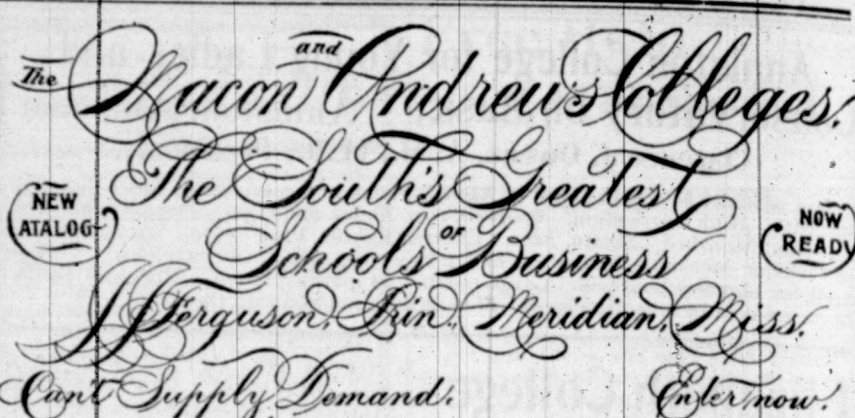 The Macon and Andrews Colleges.
The South's Greatest
NEW
ATALOG
Schools OF Business
NOW
READY
JJ Ferguson, Prin. Meridian, Miss.
Can't Supply Demand. Enter now